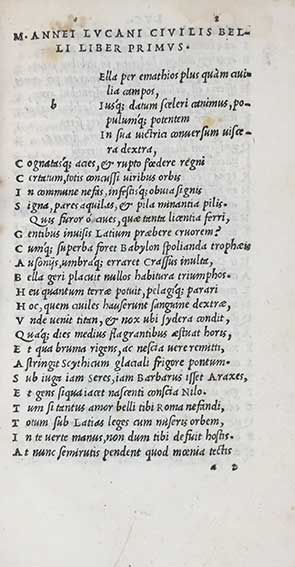 2
M. ANNEI LVCANI CIVILIS BEL-
LI LIBER PRIMVS.
Ella per emathios plus quàm ciui-
lia campos,
b Iusq; datum sceleri canimus, po-
pulumq; potentem
In sua uictrici conuersum uisce-
ra dextra,
Cognatasq; acies, & rupto foedere regni
Certatum, totis concussi uiribus orbis
In commune nefas, infestisq; obuia signis
Signa, pares aquilas, & pila minantia pilis.
Quis furor ô ciues, quæ tanta licentia ferri,
Gentibus inuisis Latium præbere cruorem?
Cumq; superba foret Babylon spolianda trophæis
Ausonijs, umbraq; erraret Crassus inulta,
Bella geri placuit nullos habitura triumphos.
Heu quantum terræ potuit, pelagiq; parari
Hoc, quem ciuiles hauserunt sanguine dextræ,
Vnde uenit titan, & nox ubi sydera condit,
Quaq; dies medius flagrantibus æstuat horis,
Et qua bruma rigens, ac nescia uere remitti,
Astringit Scythicum glaciali frigore pontum.
Sub iuga iam Seres, iam Barbarus isset Araxes,
Et gens siqua iacet nascenti conscia Nilo.
Tum si tantus amor belli tibi Roma nefandi,
Totum sub Latias leges cum miseris orbem,
In te uerte manus, non dum tibi defuit hostis.
At nunc semirutis pendent quod moenia tectis
a 2